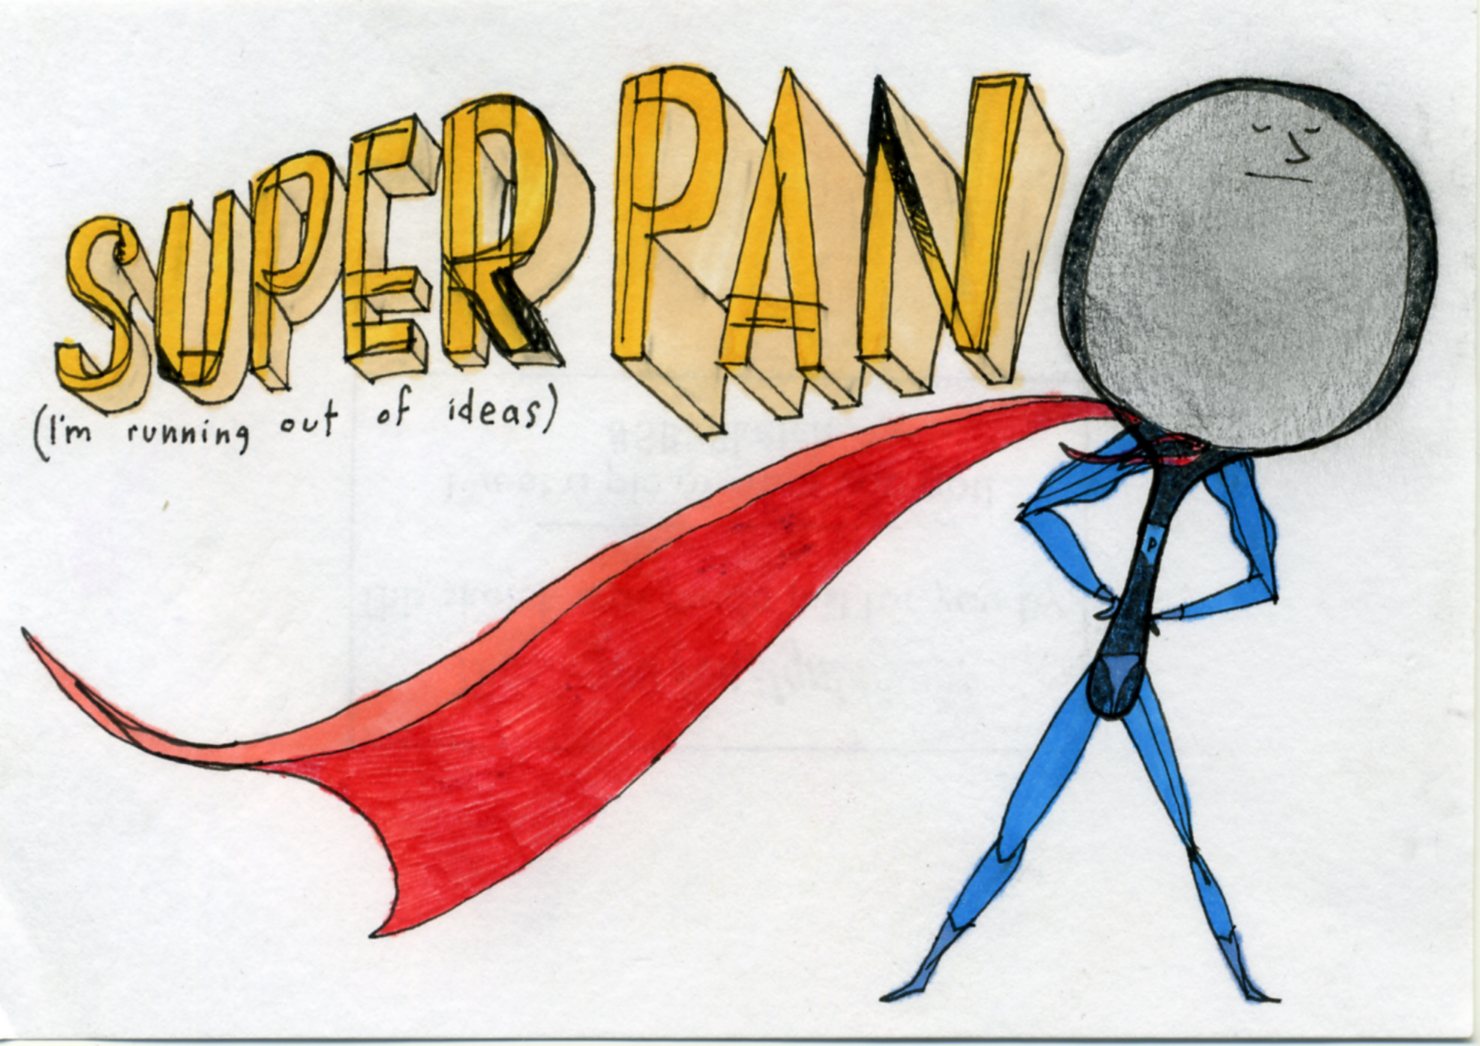 SUPER PAN
(I'm running out of ideas)
P